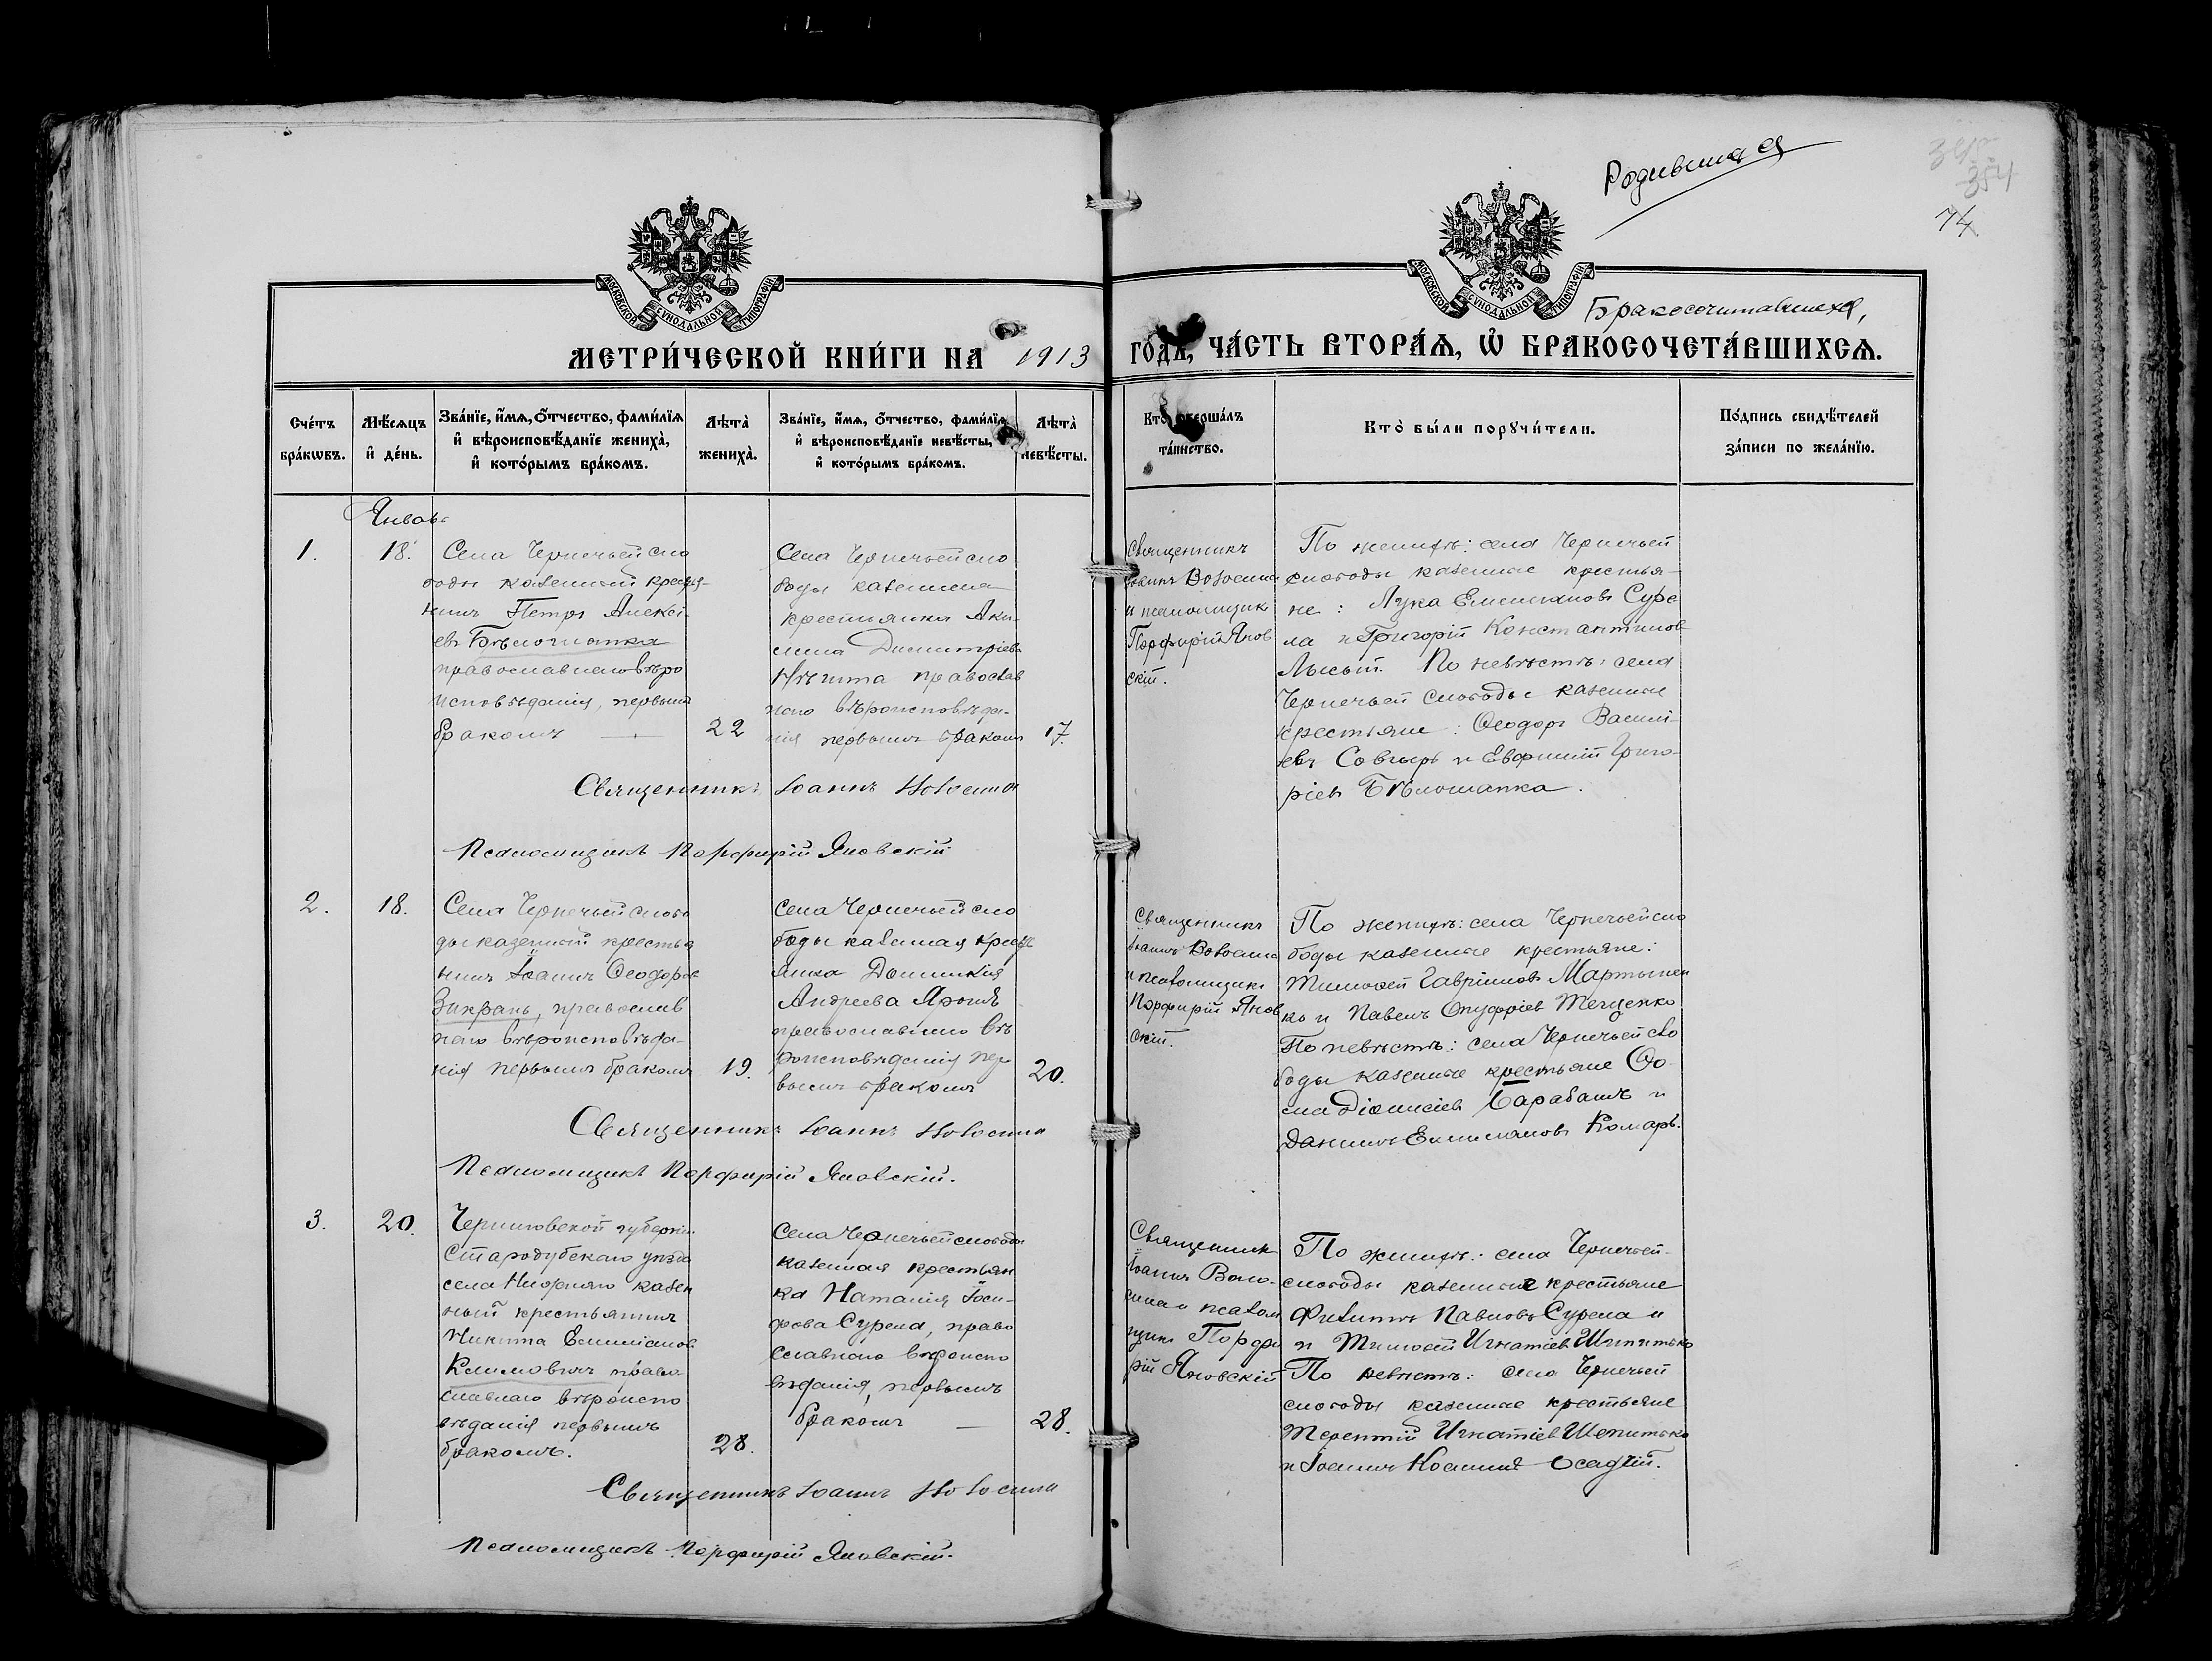 Родившияся
354
74
МОСКОВСКОЙ СѴНОДАЛЬНОЙ ТИПОГРАФІИ
МОСКОВСКОЙ СѴНОДАЛЬНОЙ ТИПОГРАФІИ
Бракосочитавшихся,
МЕТРИ́ЧЕСКОЙ КНИ́ГИ НА 1913 ГО́ДЪ, ЧА́СТЬ ВТОРА́Ѧ, Ѡ҆ БРАКОСОЧЕТА́ВШИХСѦ.
Сче́тъ бра́кѡвъ.
Мѣ́сѧцъ и҆ де́нь.
Зва́нїе, и҆́мѧ, ѻ҆́тчество, фами́лїѧ и҆ вѣроисповѣ́данїе жениха̀, и҆ кото́рымъ бра́комъ.
Лѣта̀ жениха̀.
Зва́нїе, и҆́мѧ, ѻ҆́тчество, фами́лїѧ и҆ вѣроисповѣ́данїе невѣ́сты, и҆ кото́рымъ бра́комъ.
Лѣта̀ невѣ́сты.
Кто̀ соверша́лъ та́инство.
Кто̀ бы́ли порꙋчи́тели.
По́дпись свидѣ́телей за́писи по жела́нїю.
Январь
1.
18.
Села Чернечьей сло
боды казенный кресть-
нинъ Петръ Алексі-
евъ Бѣлошапка
православнаго вѣро
исповѣданія, первымъ
бракомъ —
22
Села Чернечьей сло
боды казенная
крестьянка Аку-
лина Димитріева
Нѣшта православ
наго вѣроисповѣда-
нія первымъ бракомъ
17.
Священникъ
Іоаннъ Волосина
и псаломщикъ
Порфирій Янов
скій.
По женихѣ: села Чернечьей
слободы казенные крестья-
не: Лука Емельяновъ Суре
ла и Григорій Константинов
Лысый. По невѣстѣ: села
Чернечьей слободы казенные
крестьяне: Ѳеодоръ Васили-
евъ Совгирь и Евфимій Григо-
ріевъ Бѣлошапка.
Священникъ Іоаннъ Волосина
Псаломщикъ Порфирій Яновскій
2.
18.
Села Чернечьей слобо
ды казенный крестья
нинъ Іоаннъ Ѳеодоров
Закрань, православ
наго вѣроисповѣда-
нія первымъ бракомъ
19.
Села Чернечьей сло
боды казенная кресть
янка Домникія
Андреева Ярошъ
православнаго вѣ
роисповѣданія пер
вымъ бракомъ
20.
Священникъ
Іоаннъ Волосина
и псаломщикъ
Порфирій Янов
скій.
По женихѣ: села Чернечьей сло
боды казенные крестьяне:
Тимоѳей Гавріиловъ Мартынен
ко и Павелъ Онуфріев Тещенко
По невѣстѣ: села Чернечьей сло
боды казенные крестьяне Ѳо
ма Діонисіевъ Барабашъ и
Даніилъ Емиліановъ Комаръ.
Священникъ Іоаннъ Волосина
Псаломщикъ Порфирій Яновскій.
3.
20.
Черниговской губерніи
Стародубскаго уѣзда
села казен
ный крестьянинъ
Никита Емиліанов
Климовичъ право
славнаго вѣроиспо
вѣданія первымъ
бракомъ.
28.
Села Чернечьей слободы
казенная крестьян
ка Наталія Іоси-
фова Сурела, право
славнаго вѣроиспо
вѣданія, первымъ
бракомъ —
28.
Священникъ
Іоаннъ Воло-
сина и псалом
щикъ Порфи
рій Яновскій
По женихѣ: села Чернечьей-
слободы казенные крестьяне
Филиппъ Павловъ Сурела и
и Тимоѳей Игнатіев Шепитько
По невѣстѣ: села Чернечьей
слободы казенные крестьяне
Терентій Игнатіев Шепитько
и Іоаннъ Осадчій.
Священникъ Іоаннъ Волосина
Псаломщикъ Порфирій Яновскій.